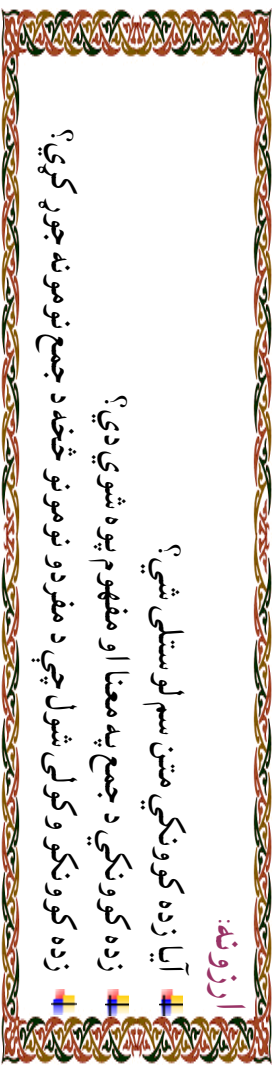 ارزونه:
آيا زده کوونکي متن سم لوستلی شي؟
زده کوونکي د جمع په معنا او مفهوم پوه شوي دي؟
زده کوونکو وکولی شول چې د مفردو نومونو څخه د جمع نومونه جوړ کړي؟